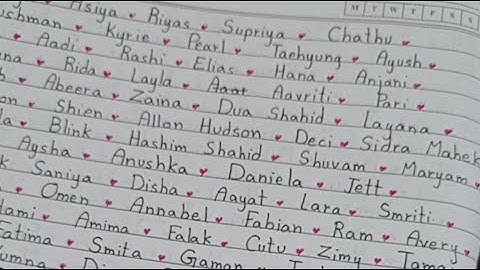 M T W T F S S
Asiya ♥ Riyas ♥ Supriya ♥ Chathu ♥
♥ Kyrie ♥ Pearl ♥ Taehyung ♥ Ayush ♥
♥ Aadi ♥ Rashi ♥ Elias ♥ Hana ♥ Anjani ♥
♥ Rida ♥ Layla ♥ Aaat Aavriti ♥ Pari ♥
♥ Abeera ♥ Zaina ♥ Dua Shahid ♥ Layana ♥
♥ Shien ♥ Allon Hudson ♥ Deci ♥ Sidra Mahek
♥ Blink ♥ Hashim Shahid ♥ Shuvam ♥ Maryam ♥
Aysha ♥ Anushka ♥ Daniela ♥ Jett ♥
♥ Saniya ♥ Disha ♥ Aayat ♥ Lara ♥ Smriti ♥
♥ Omen ♥ Annabel ♥ Fabian ♥ Ram ♥ Avery ♥
♥ Amima ♥ Falak ♥ Cutu ♥ Zimy ♥
Fatima ♥ Smita ♥ Gaman ♥